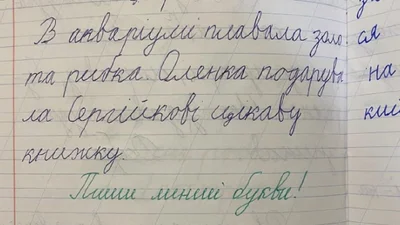 В акваріумі плавала золо-
та рибка. Оленка подарува
ла Сергійкові цікаву
книжку.
Пиши линий букви!
ся
на